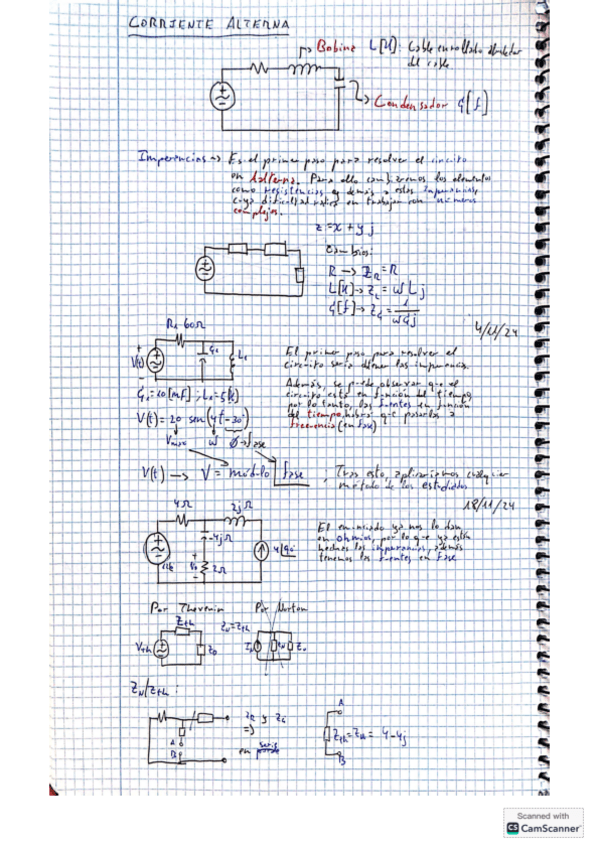 CORRIENTE ALTERNA
Bobina L[H]: Cable enrollado alrededor
del cable.
Condensador C[f]
Impedancias → Es el primer paso para resolver el circuito
en Alterna. Para ello cambiaremos los elementos
como resistencias y demás a estas impedancias,
cuya dificultad radica en trabajar con números
complejos.
z = x + y j
Cambios:
R → Z_R = R
L[H] → Z_L = ω L j
C[f] → Z_C = 1/(ω C j)
4/11/24
R₁ 60Ω
V(t)
C₁
L₁
El primer paso para resolver el
circuito sería obtener las impedancias.
C₁ = 20 [mF] ; L₁ = 5[H]
Además, se puede observar que el
circuito está en función del tiempo
por lo tanto, las fuentes en función
del tiempo, habrá que pasarlas a
frecuencia (en fase)
V(t) = 20 sen(4t - 30°)
ω φ → fase
V(t) → V = módulo fase
, Tras esto, aplicaríamos cualquier
método de los estudiados
18/11/24
4Ω 2jΩ
-4jΩ
4 90°
V₀ 2Ω
El enunciado ya nos lo dan
en ohmios, por lo que ya están
hechas las impedancias, además
tenemos las fuentes en fase
Por Thevenin Por Norton
Zth Z_N = Zth
Vth Z₀ I_N Z_N Z₀
Z_N/Zth :
Z_R y Z_C
⇒
en serie
A
B
A
Zth = Z_N = 4 - 4j
B
Scanned with
CS CamScanner